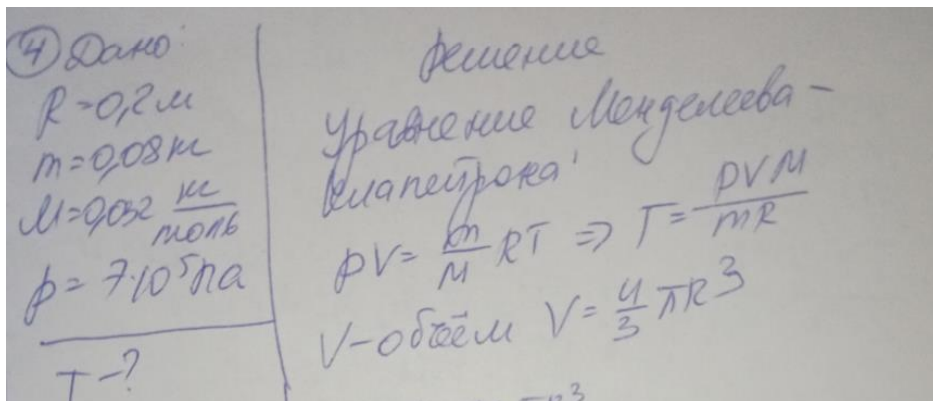 ④ Дано:
R=0,2м
m=0,08кг
M=0,032 кг/моль
p=7·10⁵Па
T-?
Решение
Уравнение Менделеева-
Клапейрона:
pV= m/M RT => T= pVM/mR
V-объём V= 4/3 πR³